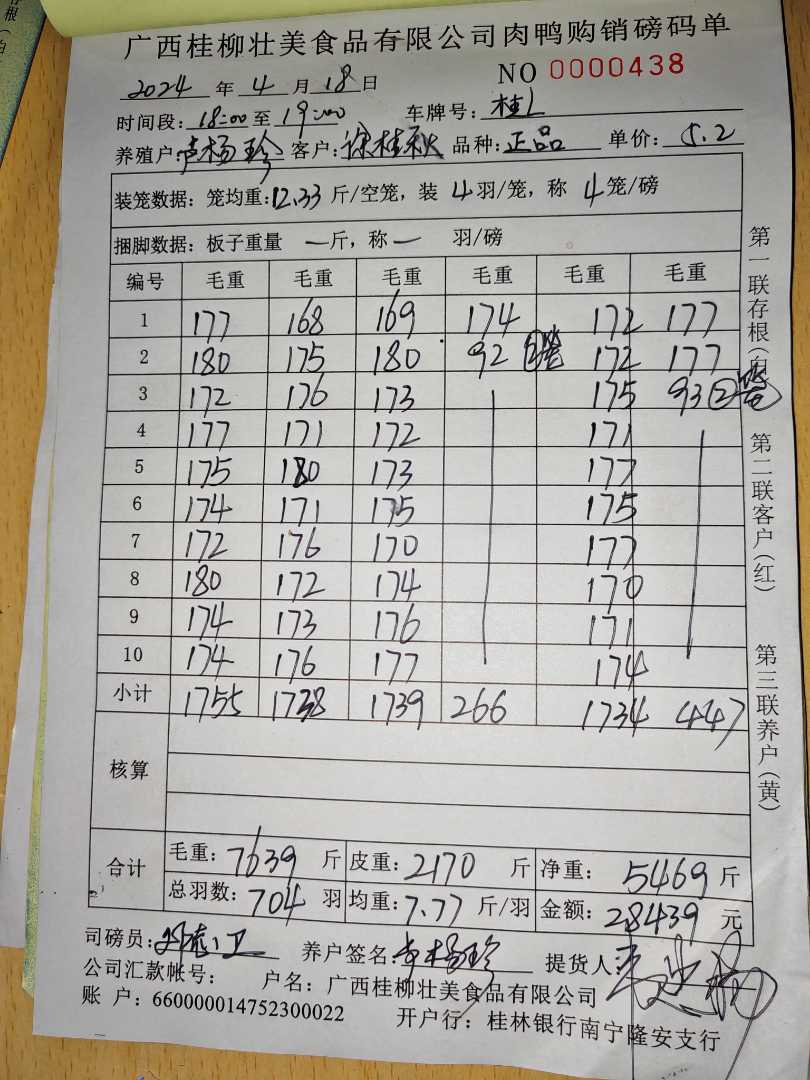 广西桂柳壮美食品有限公司肉鸭购销磅码单
2024 年 4 月 18 日 NO 0000438
时间段: 18:00 至 19:00 车牌号: 桂L
养殖户: 杨珍 客户: 徐桂秋 品种: 正品 单价: 5.2
装笼数据: 笼均重: 12.33 斤/空笼, 装 4 羽/笼, 称 4 笼/磅
捆脚数据: 板子重量 一 斤, 称 一 羽/磅
编号 毛重 毛重 毛重 毛重 毛重 毛重
1 177 168 169 174 172 177
2 180 175 180 92 ②笼 172 177
3 172 176 173 175 93 ②笼
4 177 171 172 171
5 175 180 173 177
6 174 171 175 175
7 172 176 170 177
8 180 172 174 170
9 174 173 176 171
10 174 176 177 174
小计 1755 1738 1739 266 1734 447
核算
合计 毛重: 7639 斤 皮重: 2170 斤 净重: 5469 斤
总羽数: 704 羽 均重: 7.77 斤/羽 金额: 28439 元
司磅员: 养户签名: 杨珍 提货人:
公司汇款帐号: 户名: 广西桂柳壮美食品有限公司
账 户: 660000014752300022 开户行: 桂林银行南宁隆安支行
第一联存根(白
第二联客户(红)
第三联养户(黄)